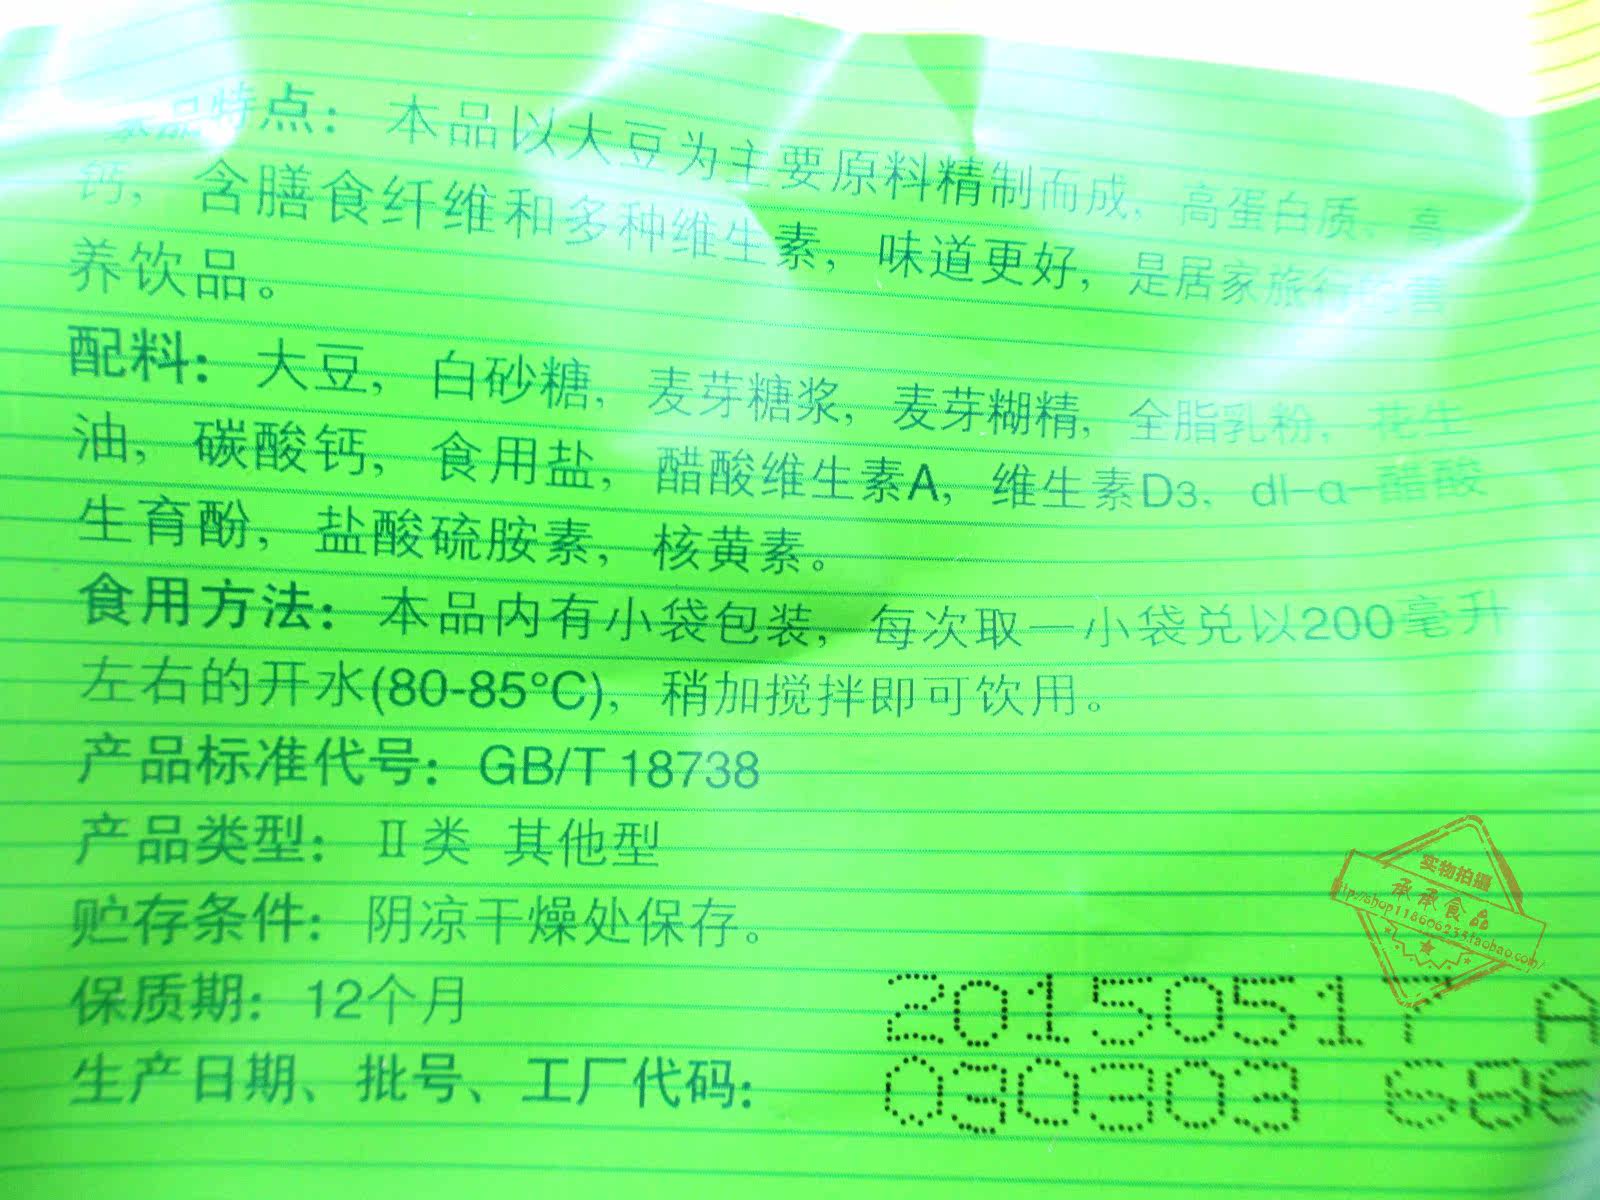 品特点：本品以大豆为主要原料精制而成，高蛋白质、高
钙，含膳食纤维和多种维生素，味道更好，是居家旅行
养饮品。
配料：大豆，白砂糖，麦芽糖浆，麦芽糊精，全脂乳粉，花生
油，碳酸钙，食用盐，醋酸维生素A，维生素D3，dl-α-醋酸
生育酚，盐酸硫胺素，核黄素。
食用方法：本品内有小袋包装，每次取一小袋兑以200毫升
左右的开水(80-85°C)，稍加搅拌即可饮用。
产品标准代号：GB/T 18738
产品类型：Ⅱ类 其他型
贮存条件：阴凉干燥处保存。
保质期：12个月
生产日期、批号、工厂代码：
20150517 A
030303
实物拍摄
承承食品
http://shop118606235.taobao.com/